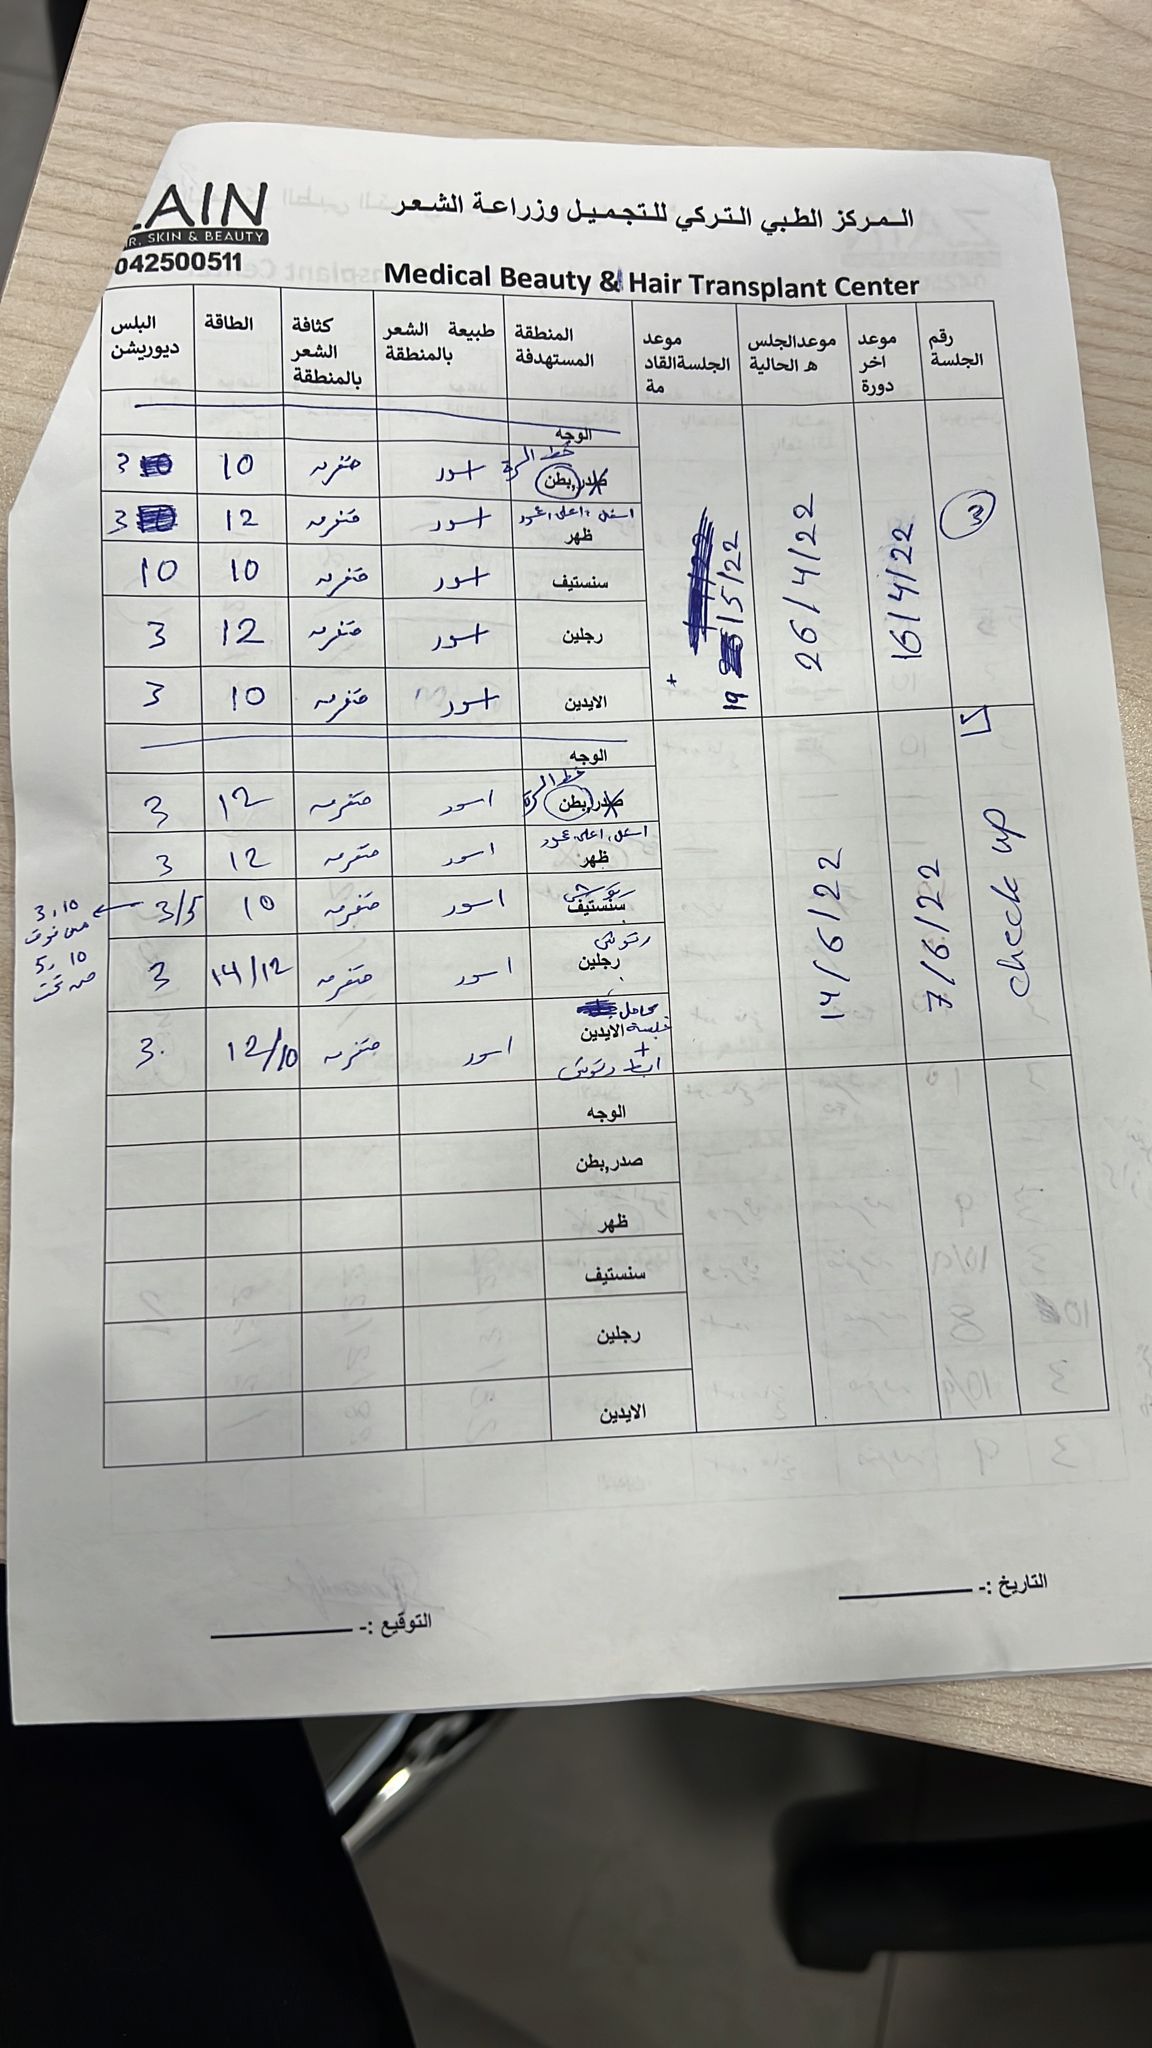 المركز الطبي التركي للتجميل وزراعة الشعر
AIN
R, SKIN & BEAUTY
042500511
Medical Beauty & Hair Transplant Center
رقم الجلسة
موعد اخر دورة
موعدالجلس هـ الحالية
موعد الجلسةالقاد مة
المنطقة المستهدفة
طبيعة الشعر بالمنطقة
كثافة الشعر بالمنطقة
الطاقة
البلس ديوريشن
3
16/4/22
26/4/22
19 /5/22
+
الوجه
خط السرة
صدر,بطن اسود متفرقه 10 3
اسفل + اعلى
ظهر اسود متفرقه 12 3
سنستيف اسود متفرقه 10 10
رجلين اسود متفرقه 12 3
الايدين اسود متفرقه 10 3
check up
7/6/22
14/6/22
الوجه
خط السرة
صدر,بطن اسود متفرقه 12 3
اسفل، اعلى
ظهر اسود متفرقه 12 3
رتوش
سنستيف اسود متفرقه 10 3/5
3، 10
من فوق
5، 10
من تحت
رتوش
رجلين اسود متفرقه 14/12 3
كامل
جلسة الايدين اسود متفرقه 12/10 3.
+
ابط رتوش
الوجه
صدر,بطن
ظهر
سنستيف
رجلين
الايدين
التاريخ :- ________
التوقيع :- ________